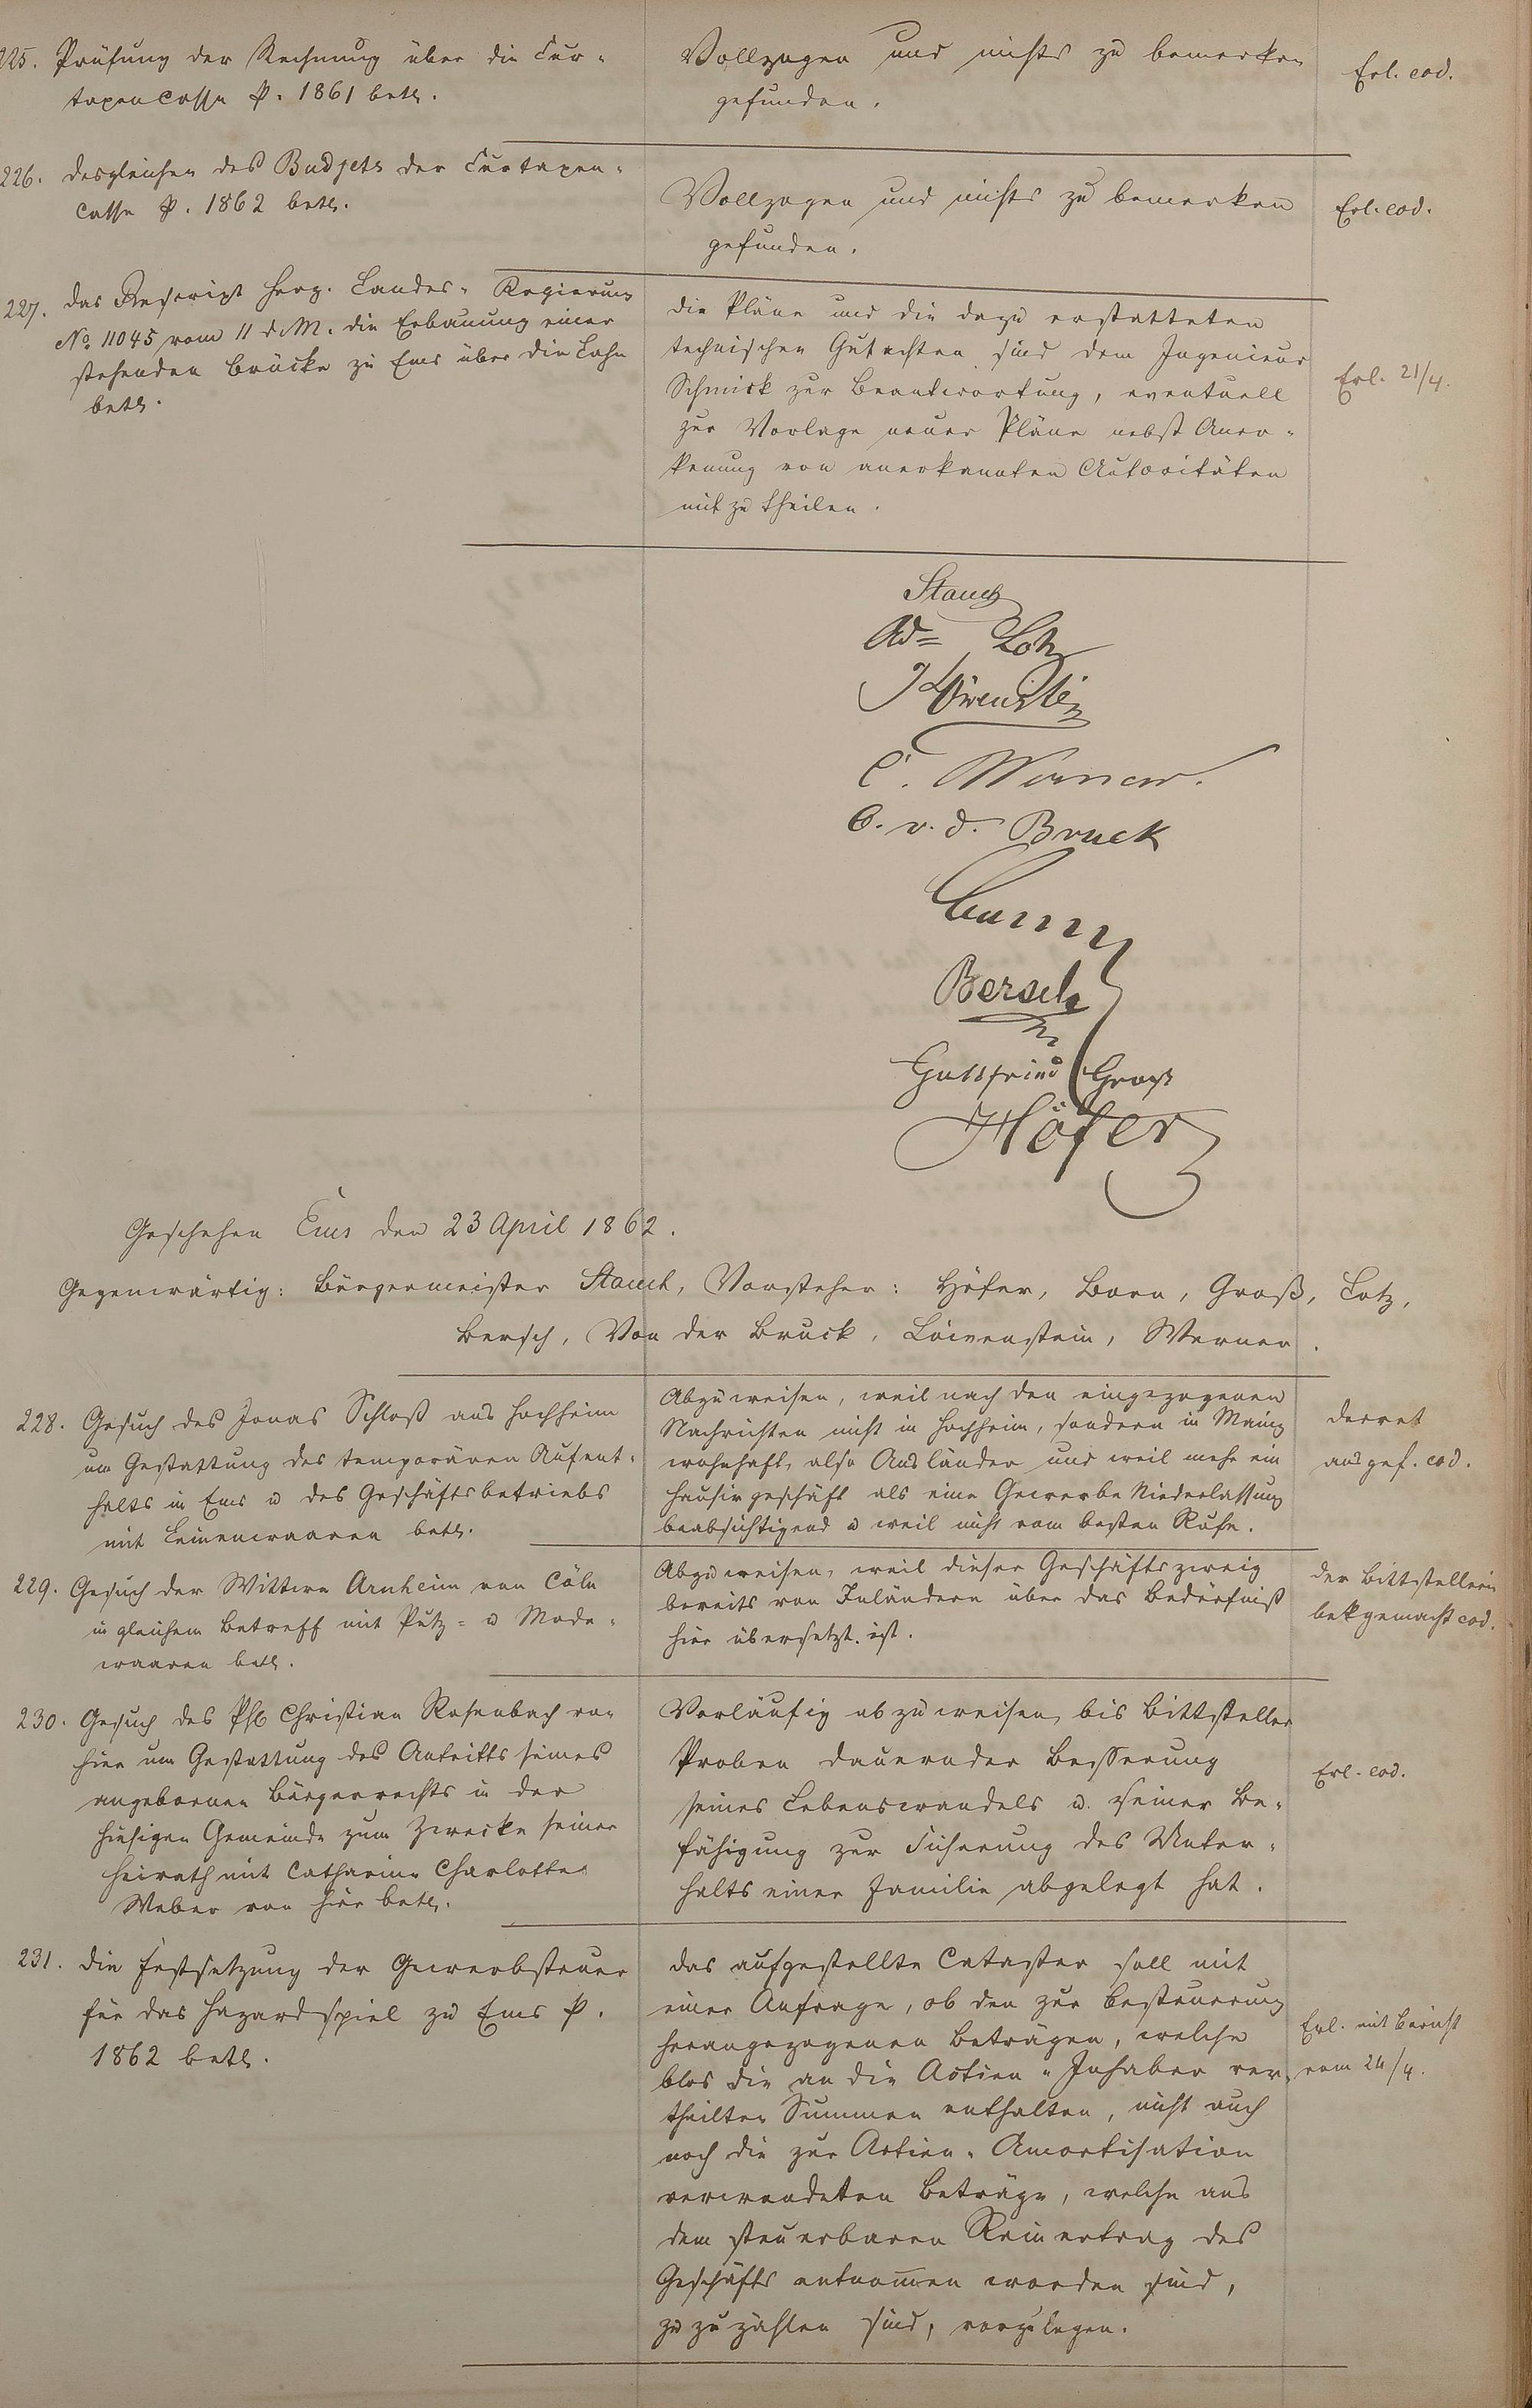 225. Prüfung der Rechnung über die Cur-
taxencasse p. 1861 betr.
Vollzogen und nichts zu bemerken
gefunden.
Erl. eod.
226. desgleichen des Budjets der Curtaxen-
casse p. 1862 betr.
Vollzogen und nichts zu bemerken
gefunden.
Erl. eod.
227. das Rescript Herz. Landes-Regierung
No 11045 vom 11 d. M. die Erbauung einer
stehenden Brücke zu Ems über die Lahn
betr.
die Pläne und die dazu erstatteten
technischen Gutachten sind dem Ingenieur
Schmick zur Beantwortung, eventuell
zur Vorlage neuer Pläne nebst Aner-
kenung von anerkannten Autoritäten
mit zu theilen.
Erl. 21/4.
Stauch
Ad= Lotz
J Löwenstein
C. Werner.
C. v. d. Bruck
Bersch
Gottfried Groß
Höfer
Geschehen Ems den 23 April 1862.
Gegenwärtig: Bürgermeister Stauch, Vorsteher: Höfer, Born, Groß, Lotz,
Bersch, Von der Bruck, Löwenstein, Werner.
228. Gesuch des Jonas Schloß aus Hochheim
um Gestattung des temporären Aufent-
halts in Ems u des Geschäftsbetriebs
mit Leinenwaaren betr.
Abzuweisen, weil nach den eingezogenen
Nachrichten nicht in Hochheim, sondern in Mainz
wohnhaft, also Ausländer und weil mehr ein
Hausirgeschäft als eine Gewerbe Niederlassung
beabsichtigend u weil nicht vom besten Rufe.
decret
ausgef. eod.
229. Gesuch der Wittwe Arnheim von Cöln
in gleichem Betreff mit Putz- u Mode-
waaren betr.
Abzuweisen, weil dieser Geschäftszweig
bereits von Inländern über das Bedürfniß
hier übersetzt ist.
der Bittstellerin
bekgemacht eod.
230. Gesuch des Phl Christian Rosenbach von
hier um Gestattung des Antritts seines
angebornen Bürgerrechts in der
hiesigen Gemeinde zum Zwecke seiner
Heirath mit Catharine Charlotte
Weber von hier betr.
Vorläufig abzuweisen, bis Bittsteller
Proben dauernder Besserung
seines Lebenswandels u. seiner Be-
fähigung zur Sicherung des Unter-
halts einer Familie abgelegt hat.
Erl. eod.
231. die Festsetzung der Gewerbsteuer
für das Hazardspiel zu Ems p.
1862 betr.
das aufgestellte Cataster soll mit
einer Anfrage, ob den zur Besteuerung
herangezogenen Beträgen, welche
blos die an die Actien-Inhaber ver-
theilten Summen enthalten, nicht auch
noch die zur Actien-Amortisation
verwendeten Beträge, welche aus
dem steuerbaren Reinertrag des
Geschäfts entnommen worden sind,
zu zuzählen sind, vorzulegen.
Erl. mit Bericht
vom 24/4.